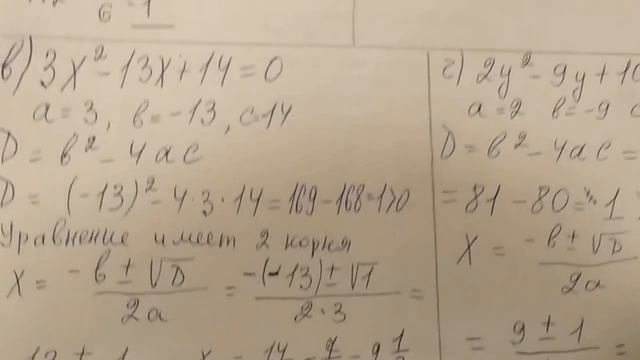 6 = 1
в) 3x² - 13x + 14 = 0
a = 3, в = -13, c = 14
D = в² - 4ac
D = (-13)² - 4·3·14 = 169 - 168 = 1 > 0
Уравнение имеет 2 корня
X = -в ± √D / 2a = -(-13) ± √1 / 2·3 =
г) 2y² - 9y + 10
a = 2 в = -9 c
D = в² - 4ac =
= 81 - 80 = 1
X = -в ± √D / 2a
= 9 ± 1 =